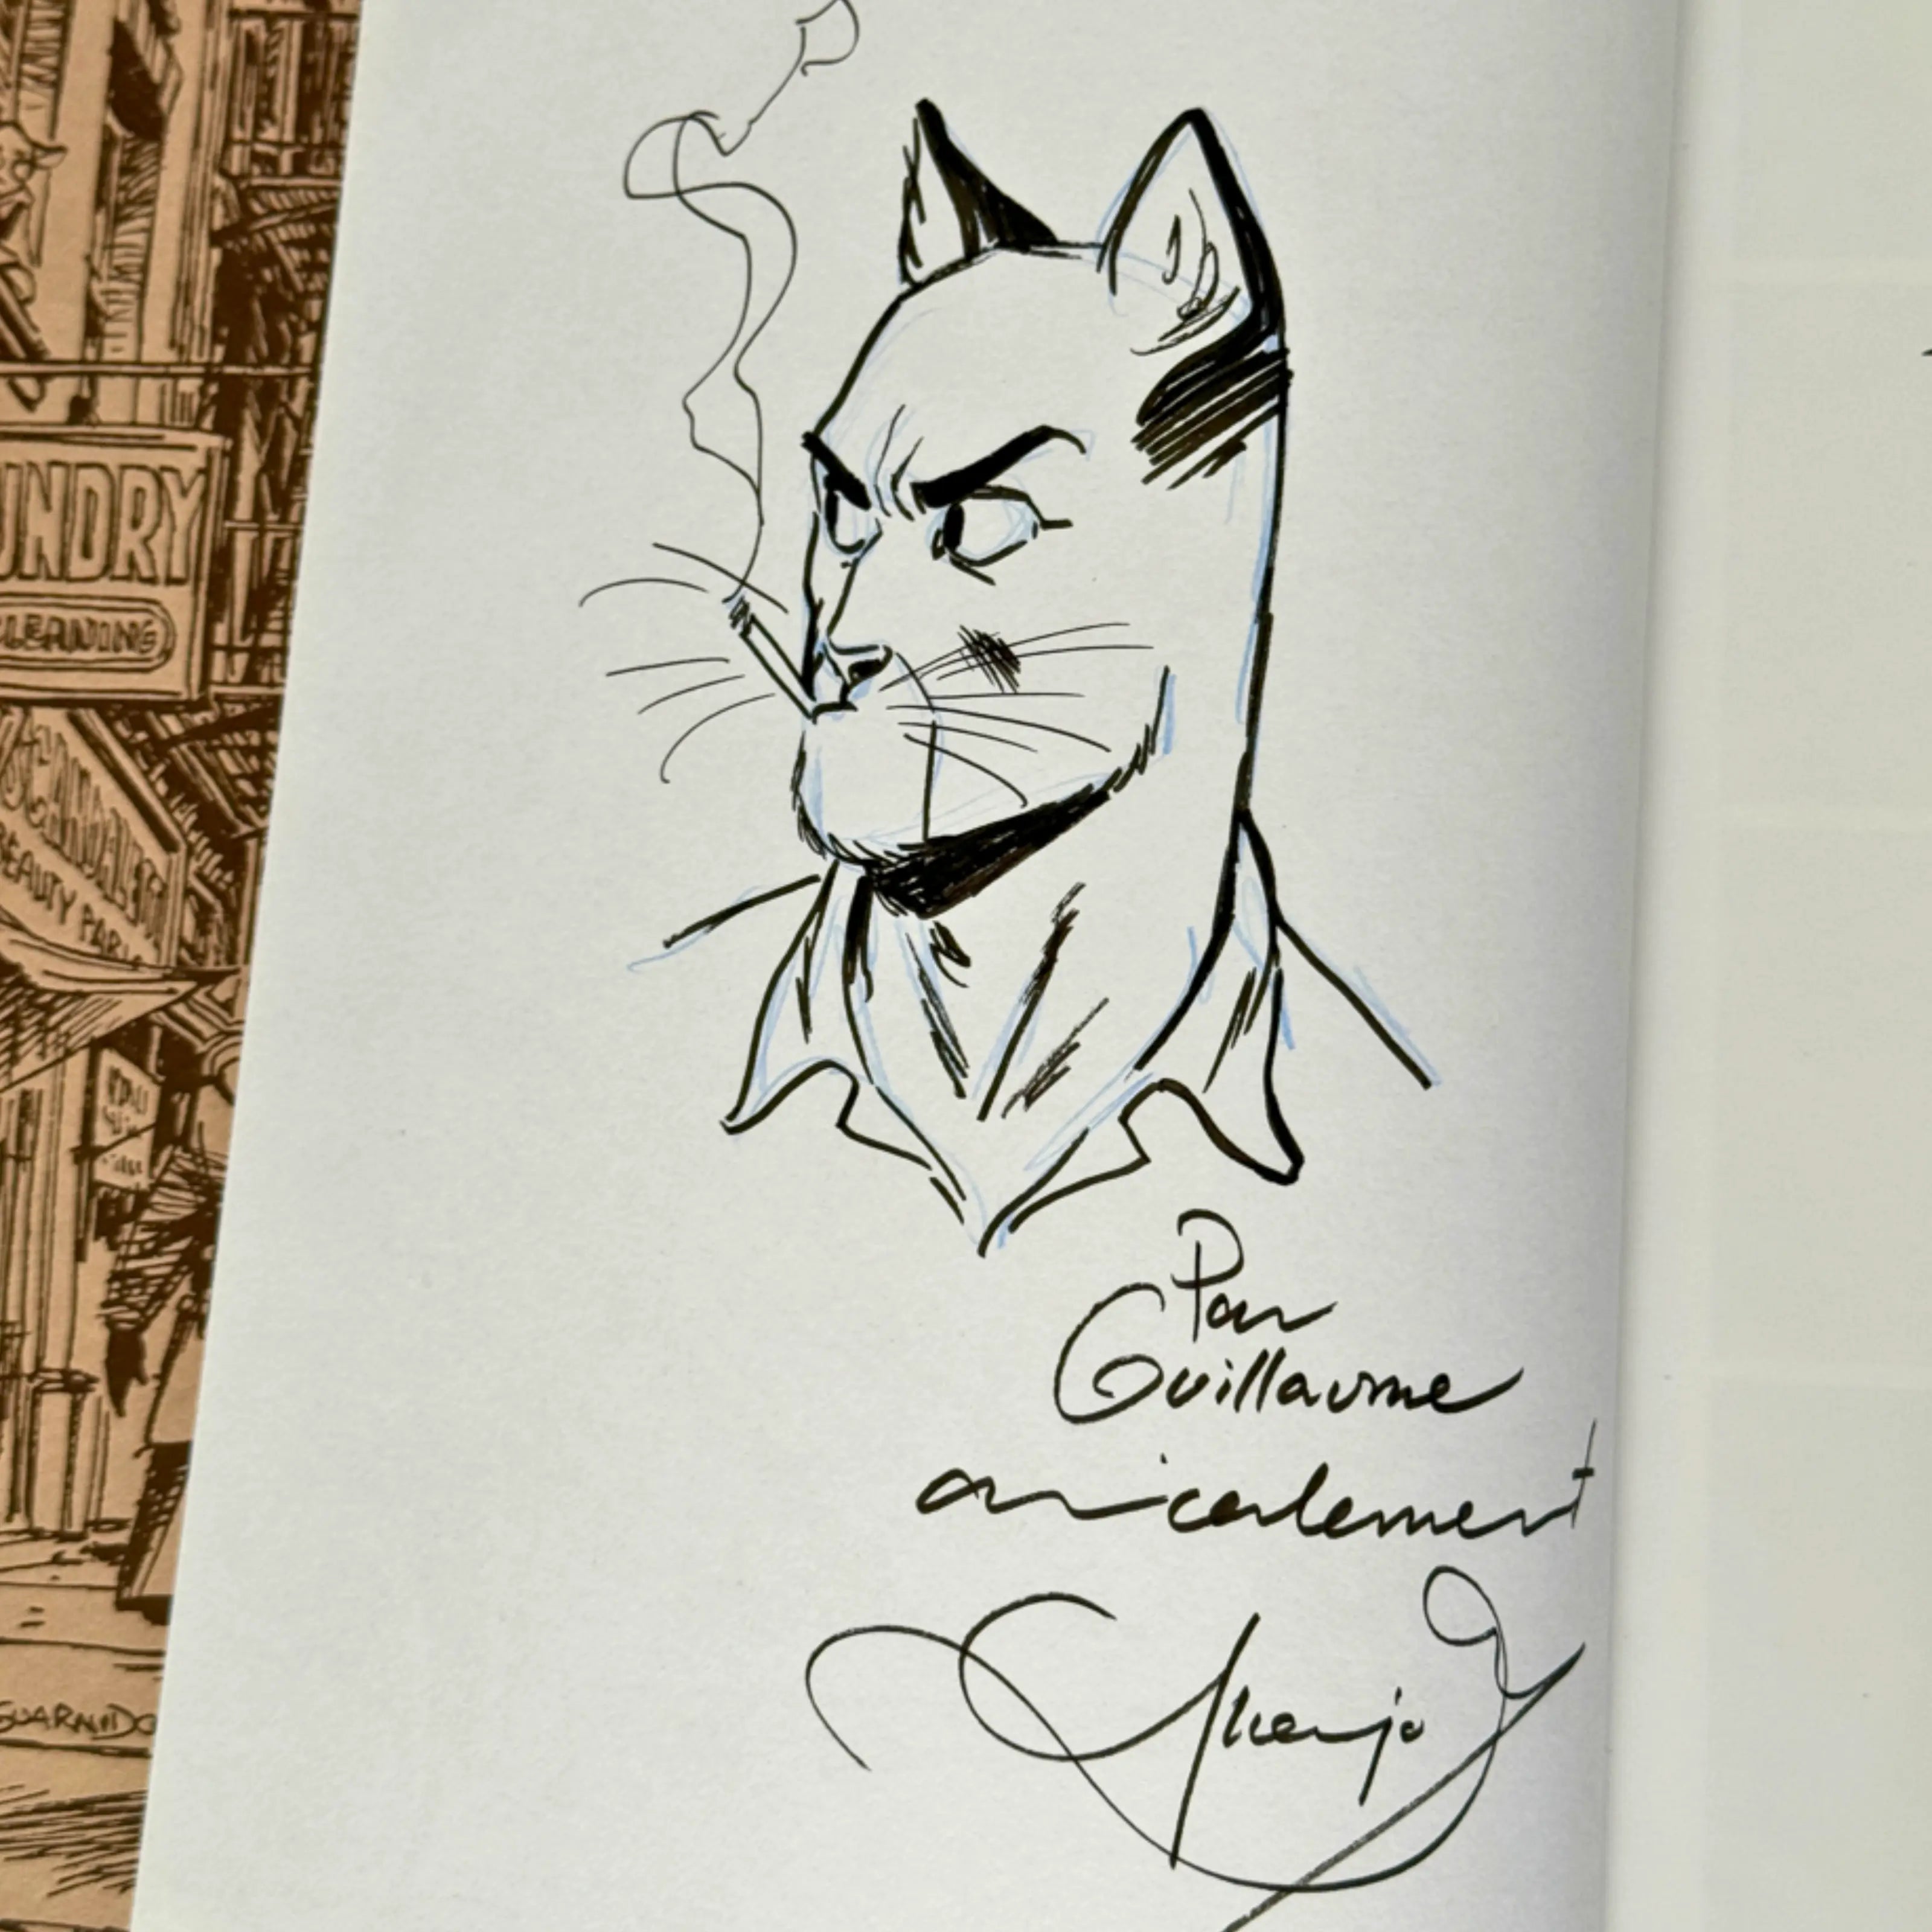 UNDRY
CLEANING
BEAUTY PAR
GUARNIDO
Pour
Guillaume
amicalement
Juanjo